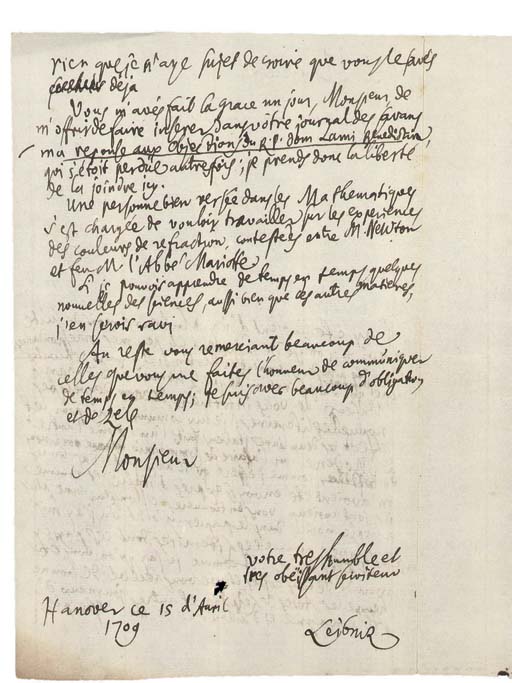 rien que je n'aye sujet de croire que vous le savés
déjà
Vous m'avés fait la grace un jour, Monsieur, de
m'offrir de faire inserer dans vôtre journal des savans
ma reponse aux objections du R. P. dom Lami Benedictin,
qui s'étoit perdue autrefois; je prends donc la liberté
de la joindre icy.
Une personne bien versée dans les Mathematiques
s'est chargée de vouloir travailler sur les experiences
des couleurs de refraction, contestées entre M. Newton
et feu M. l'Abbé Mariotte
Si je pouvois apprendre de temps en temps quelques
nouvelles des sciences, aussi bien que des autres matieres,
j'en serois ravi
Au reste vous remerciant beaucoup de
celles que vous me faites l'honneur de communiquer
de temps en temps; je suis avec beaucoup d'obligation
et de zele
Monsieur
votre tres humble et
tres obéissant serviteur
Hanover ce 15 d'Avril
1709
Leibniz